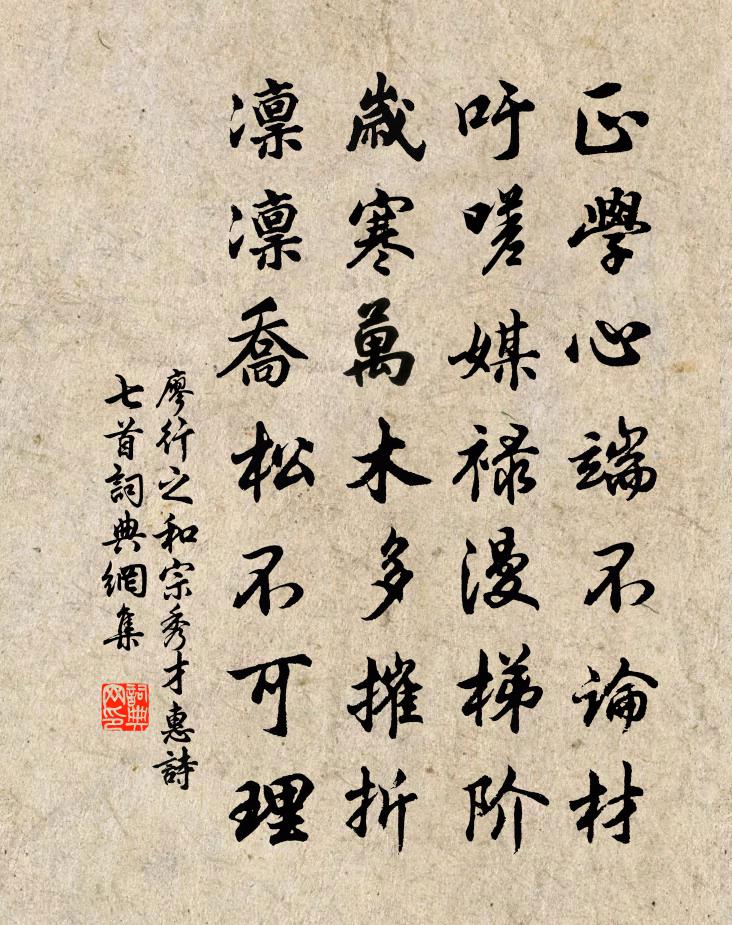 正學心端不論材
吁嗟媒禄漫梯阶
歲寒萬木多摧折
凛凛喬松不可理
廖行之和宗秀才惠詩
七首詞典網集
詞典
网印